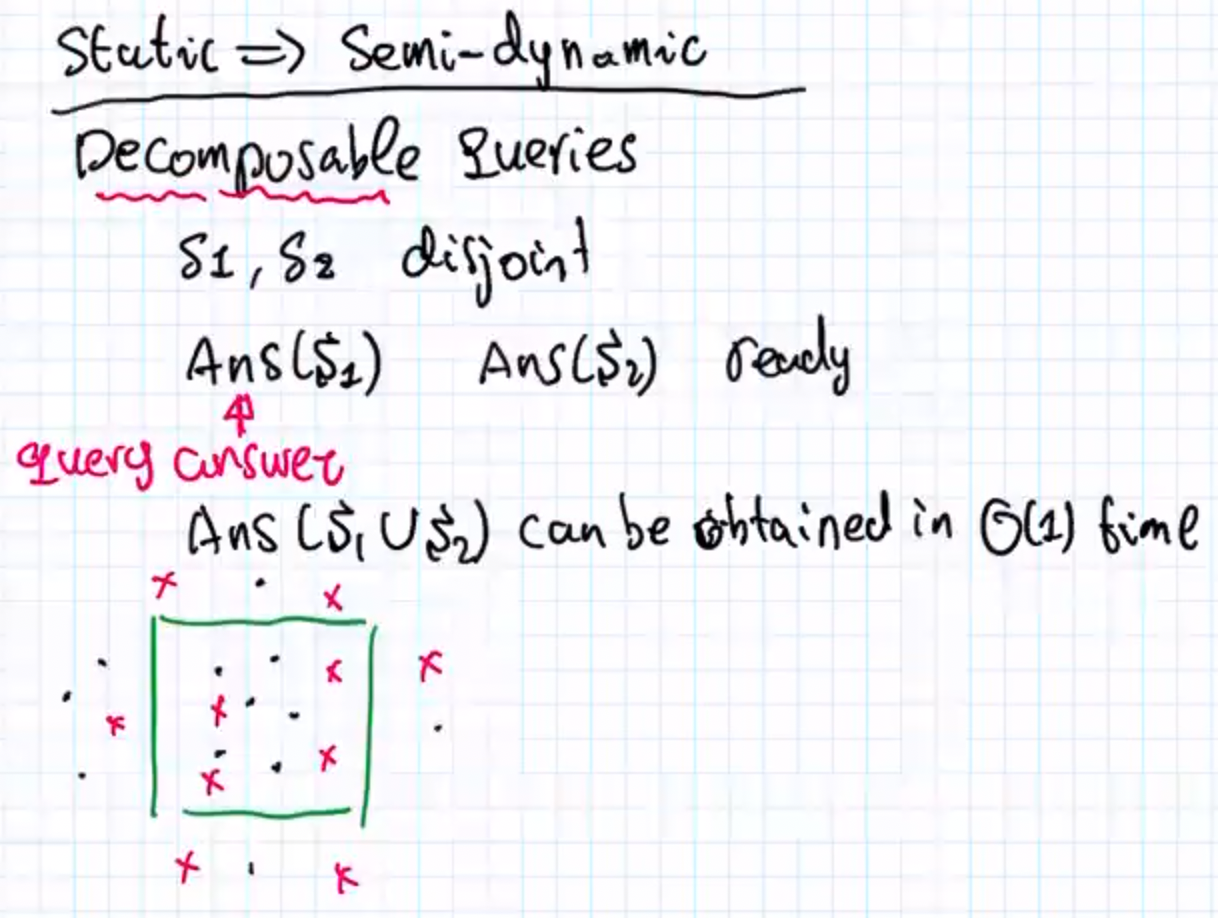 Static => Semi-dynamic
Decomposable Queries
S1, S2 disjoint
Ans(S1) Ans(S2) ready
query answer
Ans (S1 ∪ S2) can be obtained in O(1) time